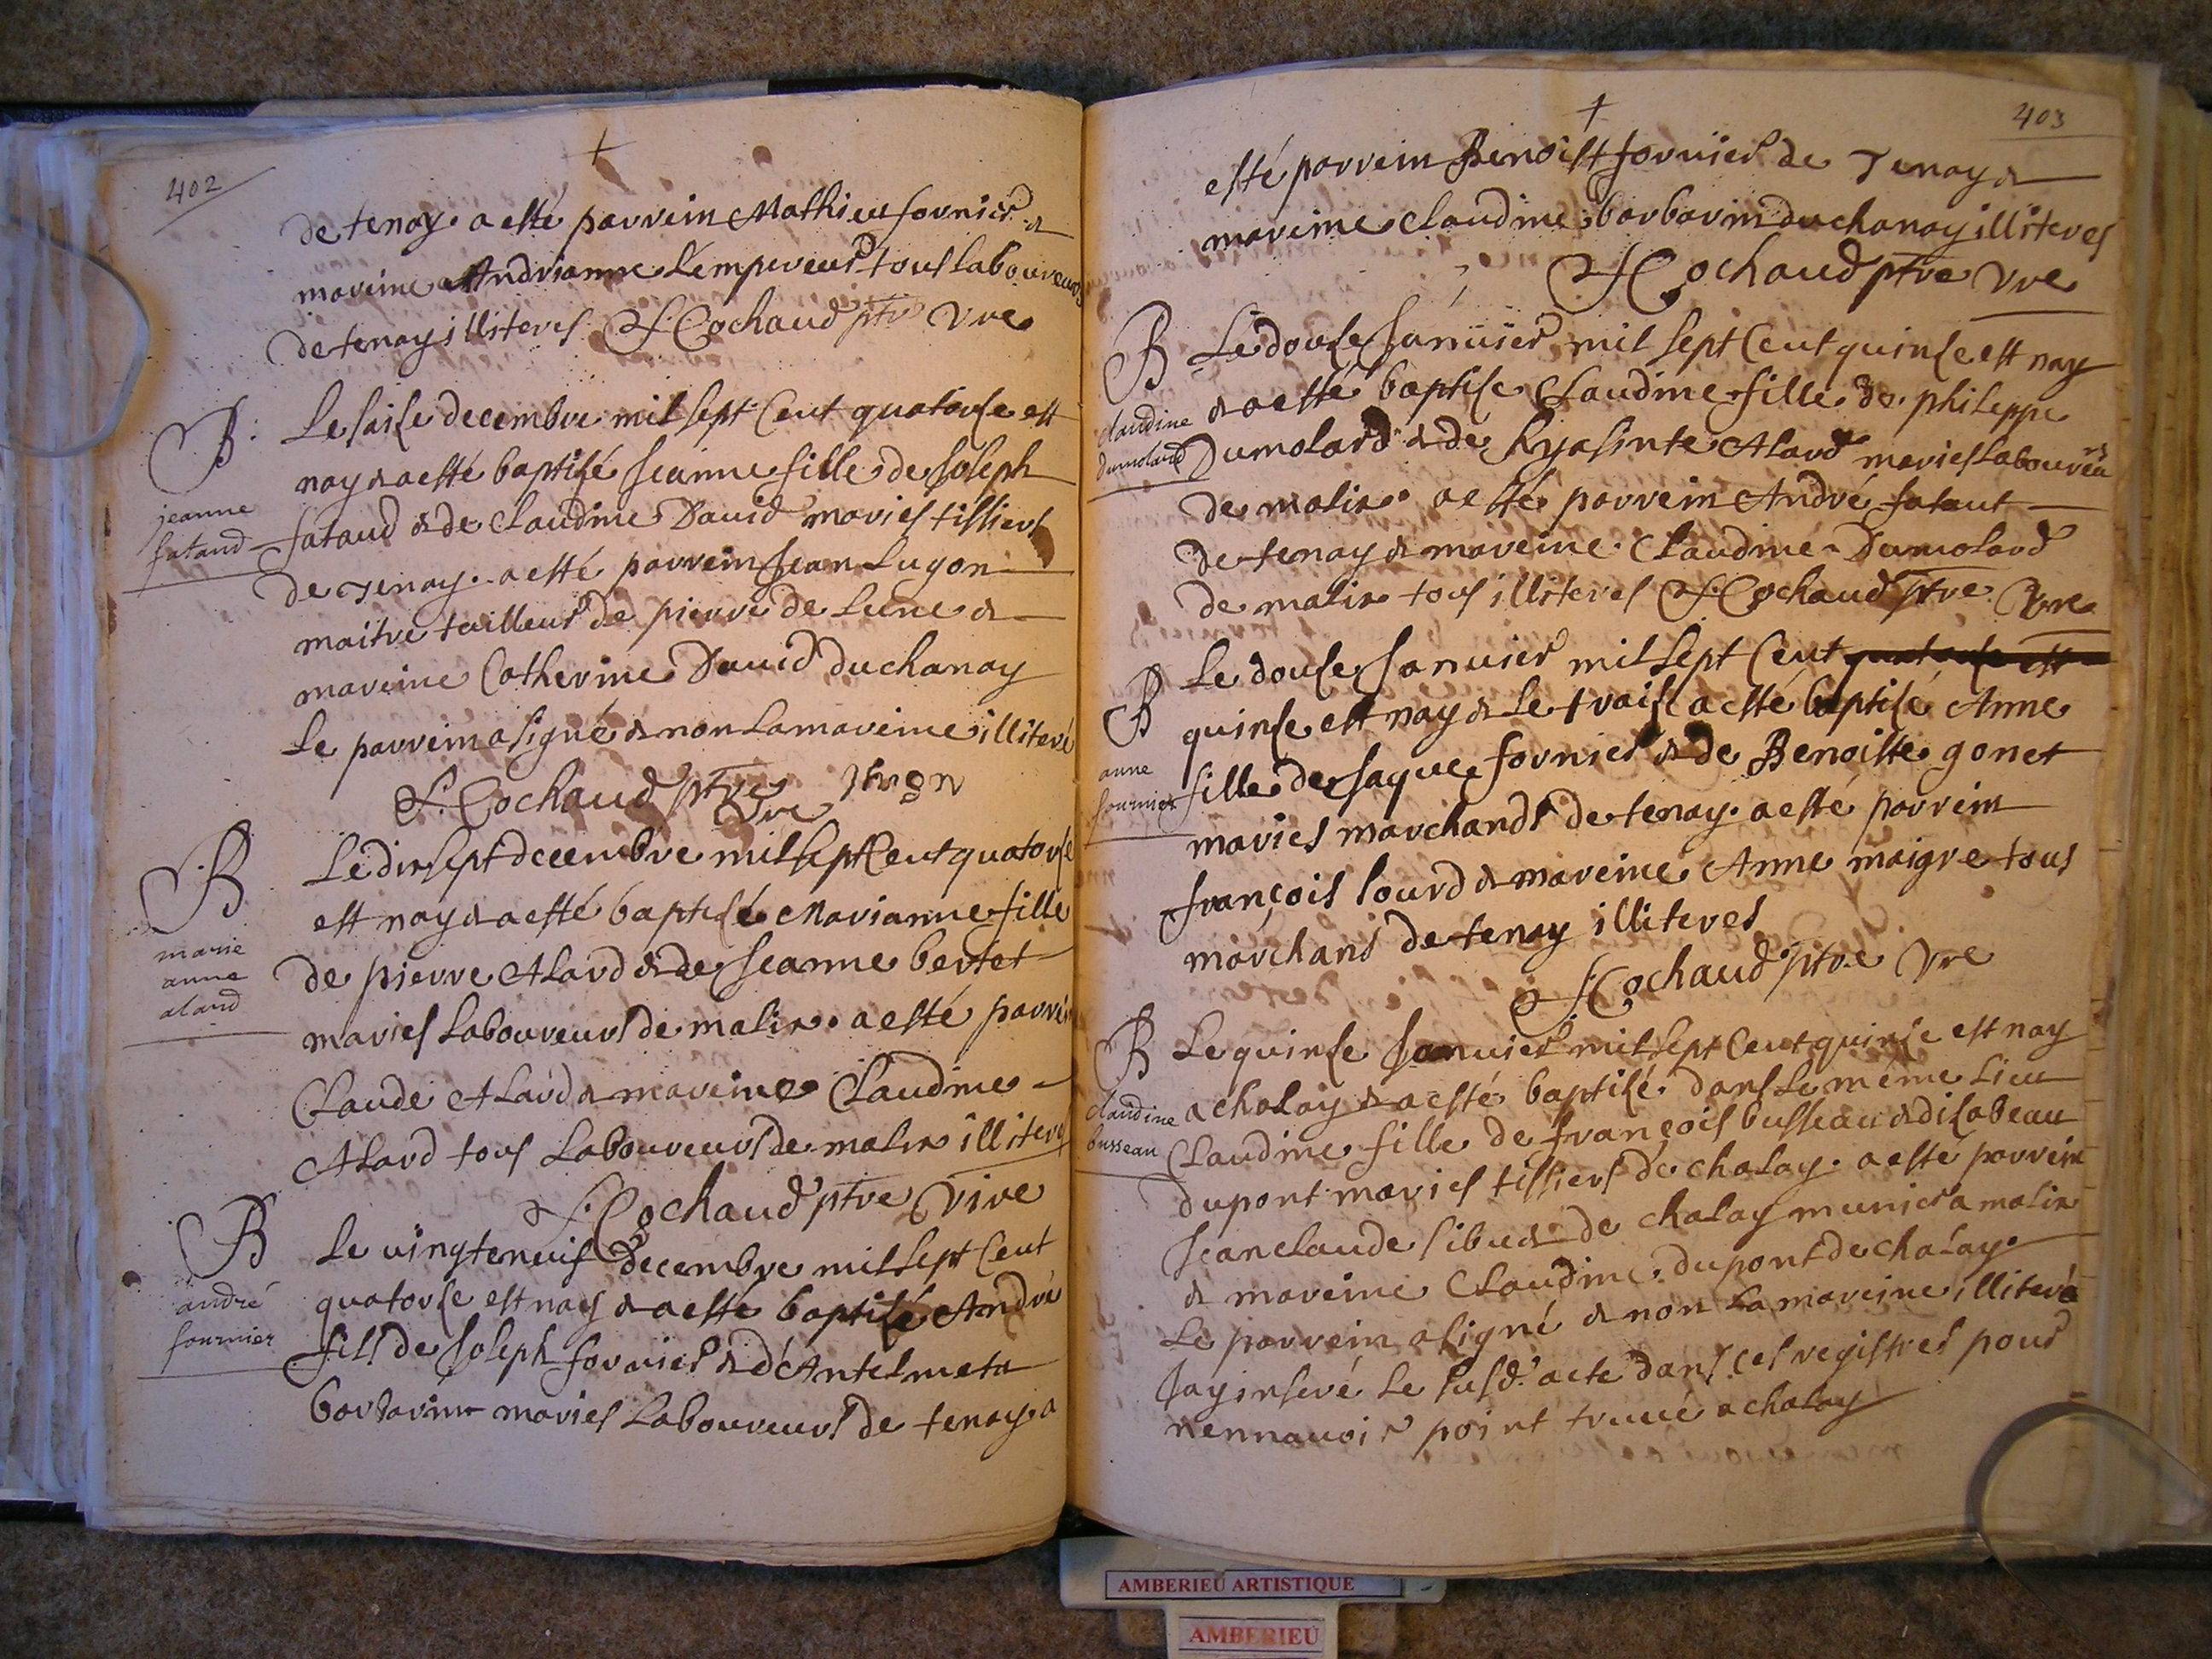 402
+
de tenay. a esté parrein Mathieu fornier &
mareine Andrianne L'empereur tous laboureurs
de tenay illiteres F. Cochaud ptre Vre
B.
jeanne
fataud
Le saise decembre mil sept Cent quatorse est
nay & a esté baptisé Jeanne fille de Joseph
fataud & de Claudine David maries tissiers
de Tenay. a esté parrein Jean Lugon
maitre tailleur de pierre de Lune &
mareine Catherine David du chanay
Le parrein a signé & non la mareine illiteré
F. Cochaud ptre Vre
B
marie
anne
alard
Le dix sept decembre mil sept Cent quatorse
est nay & a esté baptisé Marianne fille
de pierre Alard & de Jeanne bertet
maries Laboureurs de malix. a esté parrein
Claude Alard & mareine Claudine
Alard tous Laboureurs de malix illiteres
F. Cochaud ptre Vire
B
andré
fournier
Le vingteneuf decembre mil sept Cent
quatorse est nay & a esté baptisé André
fils de Joseph fornier & d'Antelmeta
barbarin maries Laboureurs de tenay. a
403
+
esté parrein Benoist fornier de Tenay &
mareine Claudine barbarin du chanay illiteres
F. Cochaud ptre Vre
B
claudine
dumolard
Le douse Janvier mil sept Cent quinse est nay
& a esté baptise Claudine fille de philippe
Dumolard & de hyasinte Alard maries Laboureurs
de malix. a esté parrein André fataut
de tenay & mareine Claudine Dumolard
de malix tous illiteres F. Cochaud ptre Vre
B
anne
fournier
Le douse Janvier mil sept Cent quatorse est
quinse est nay & le traise a esté baptisé Anne
fille de Jaque fornier & de Benoiste gonet
maries marchands de tenay. a esté parrein
françois lourd & mareine Anne maigre tous
marchans de tenay illiteres
F. Cochaud ptre Vre
B
claudine
busseau
Le quinse Janvier mil sept Cent quinse est nay
a chalay & a esté baptisé dans le même lieu
Claudine fille de françois busseau & disabeau
dupont maries tissiers de chalay. a esté parrein
Jean claude sibue de chalay munier a malix
& mareine Claudine dupont de chalay.
Le parrein a signé & non la mareine illiteré
Jay inseré le susd. acte dans ces registres pour
nen navoir point truvé a chalay
AMBERIEU ARTISTIQUE
AMBERIEU